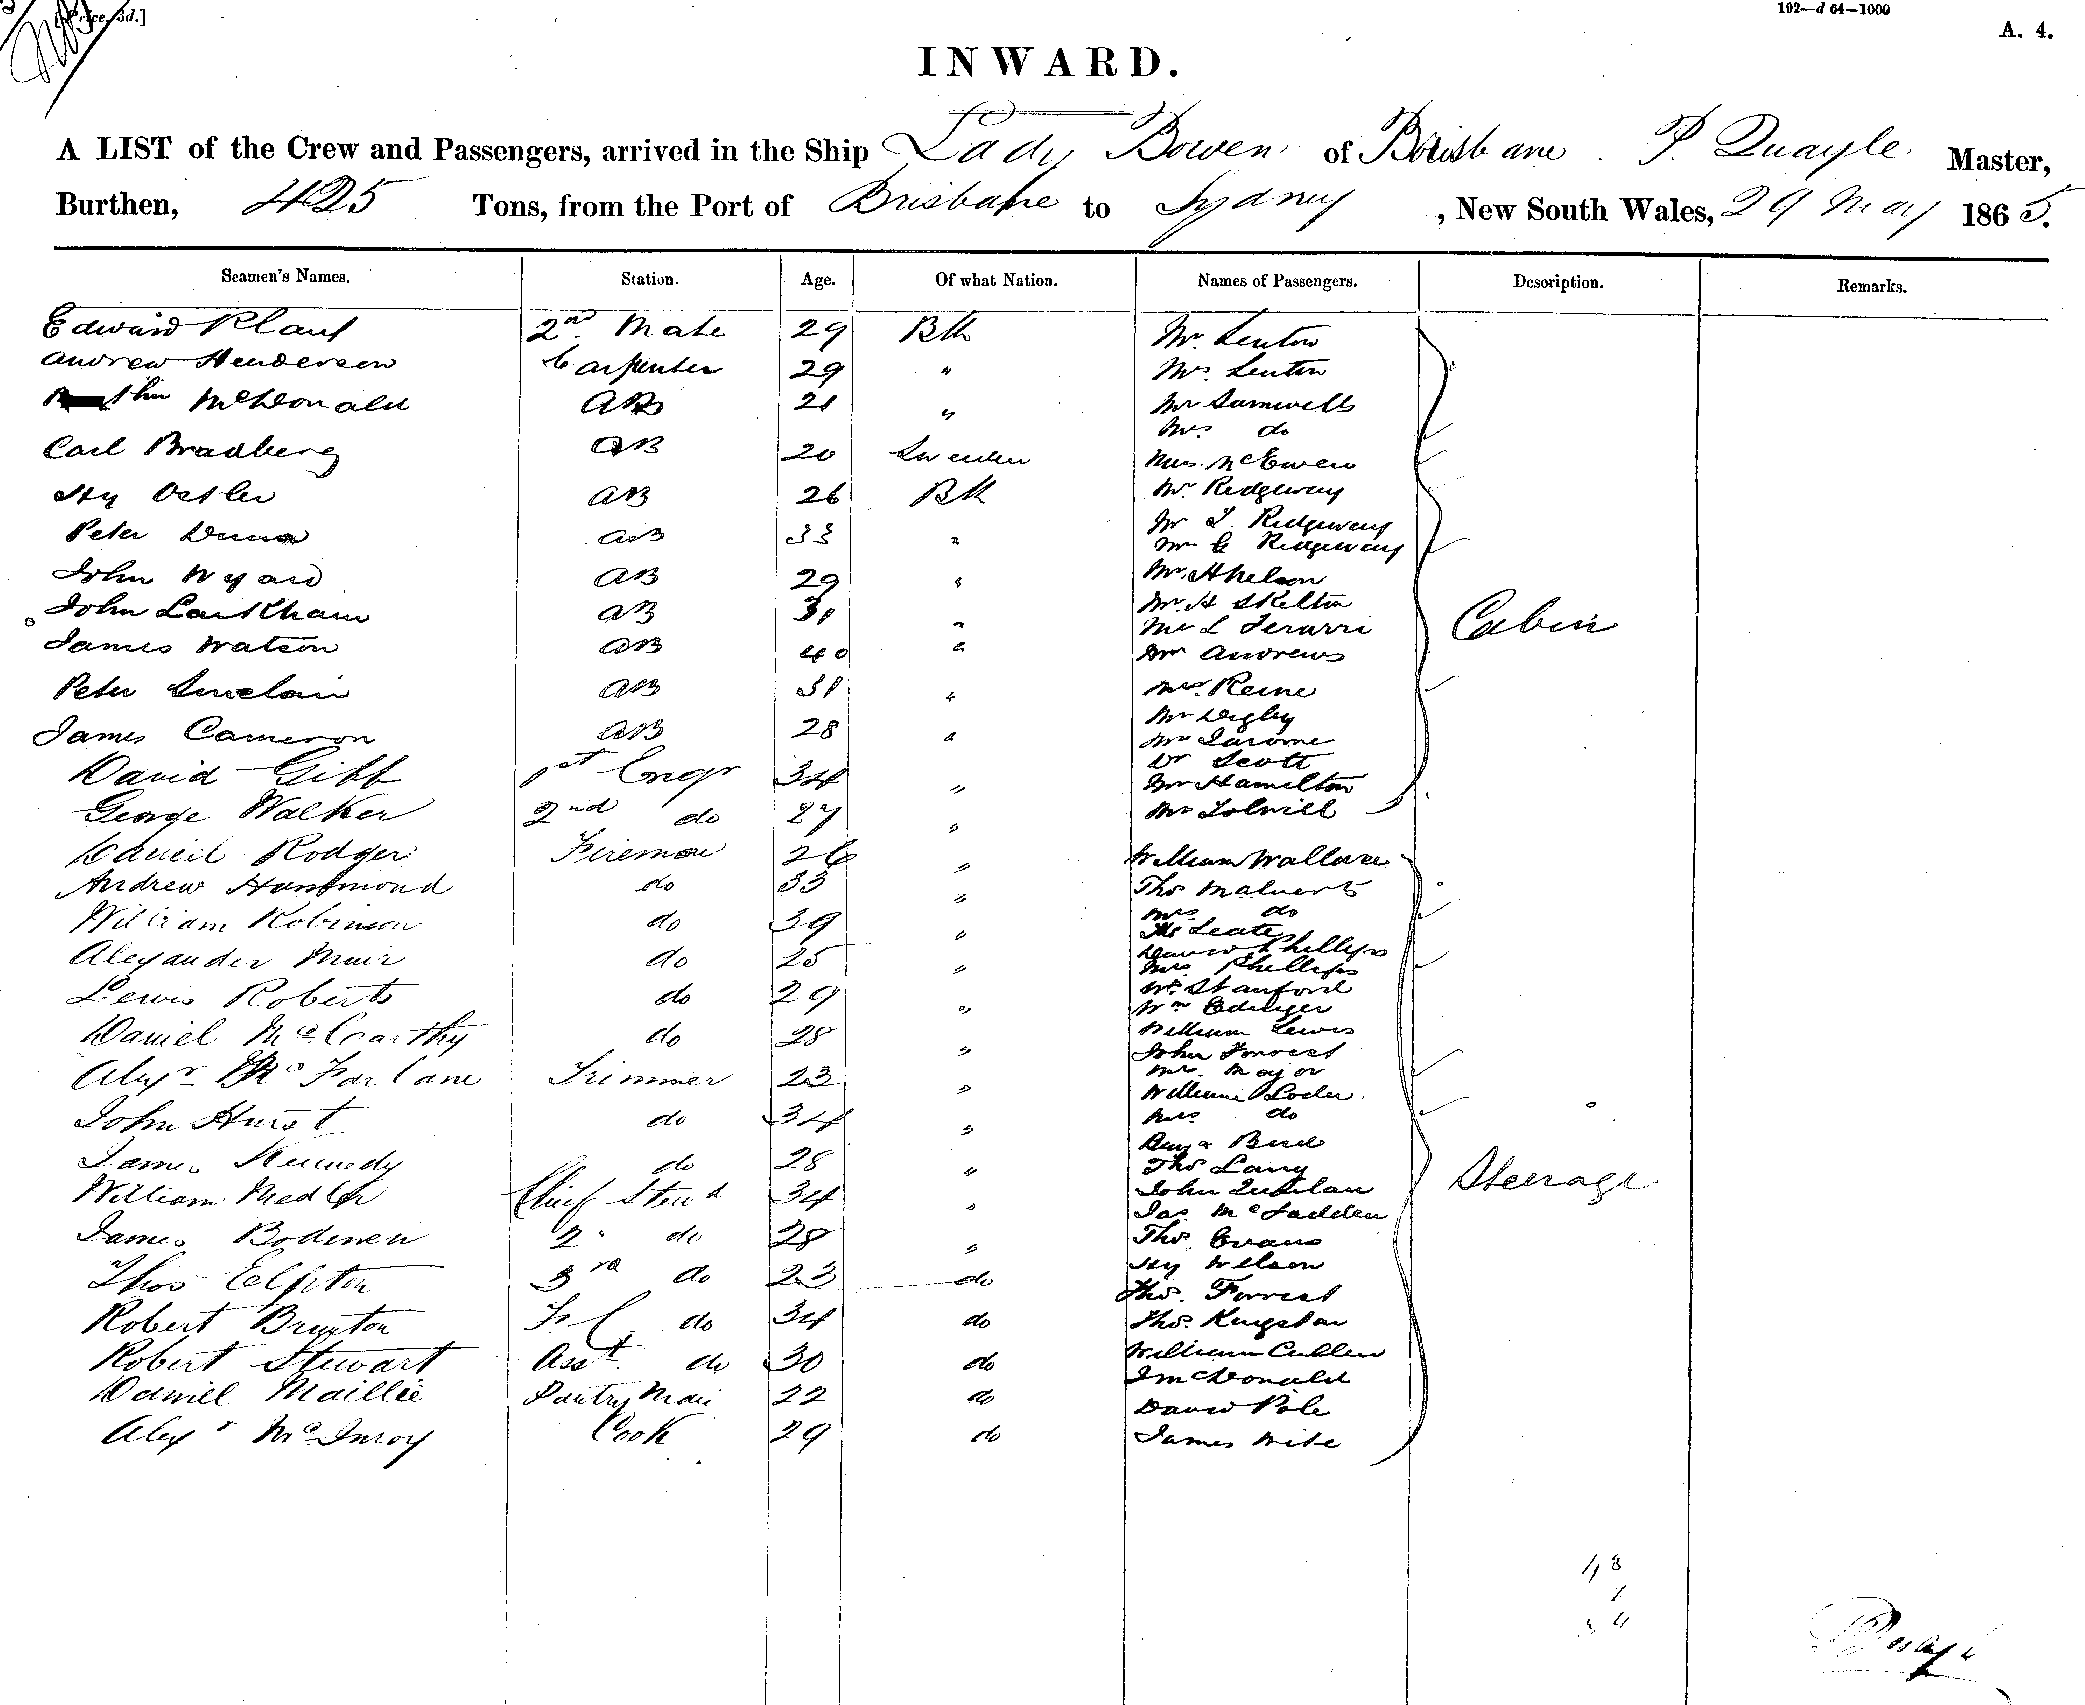 Price, 3d.]
192—d 64—1000
A. 4.
INWARD.
A LIST of the Crew and Passengers, arrived in the Ship Lady Bowen of Brisbane P. Quayle Master,
Burthen, 425 Tons, from the Port of Brisbane to Sydney, New South Wales, 29 May 1865.
Seamen's Names. Station. Age. Of what Nation. Names of Passengers. Description. Remarks.
Edward 2nd Mate 29 Bh Mr. Lenton
Andrew Henderson Carpenter 29 " Mrs. Lenton
McDonald AB 21 " Mr Samwells
Mrs do
Carl Bradberg AB 20 Sweden Mrs McEwen
Hy Ostler AB 26 Bh Mr Ridgway
Peter Dunn AB 33 " Mr Ridgeway
Mr G Ridgeway
John Wyard AB 29 "
Mr. H Skelton
John Larkham AB 31 "
James Watson AB 40 " Mr Andrews
Cabin
Peter Sinclair AB 31 " Mrs. Reine
Mr Digby
James Cameron AB 28 " Mr Jarome
Dr Scott
David Gibb 1st Engr 34 " Mr Hamilton
George Walker 2nd do 27 " Mr Tolmill
Daniel Rodger Fireman 26 " William Wallace
Andrew Hammond do 33 " Thos
Mrs do
William Robinson do 39 "
Alexander Muir do 25 " David Phillips
Mrs Phillips
Lewis Roberts do 29 " Stanford
Wm
Daniel McCarthy do 28 " William Lewis
John Forrest
Alexr McFarlane Trimmer 23 " Mr. Major
William Loder
John Hurst do 34 " Mrs do
Bird
James Kennedy do 28 " Thos Lang
William Medler Chief Stewd 34 " John Quinlan
Steerage
Jas McFadden
James Bodenen 2 do 28 " Thos Evans
Hy Wilson
Thos Eelpton 3rd do 23 do Thos. Forrest
Robert Bruxton do 34 do Thos. Kingston
Robert Stewart Asst. do 30 do William Cullen
J McDonald
Daniel Maillie Pantry Man 22 do David Pole
Alexr McInroy Cook 29 do James Wite
18
1
34
P Quayle